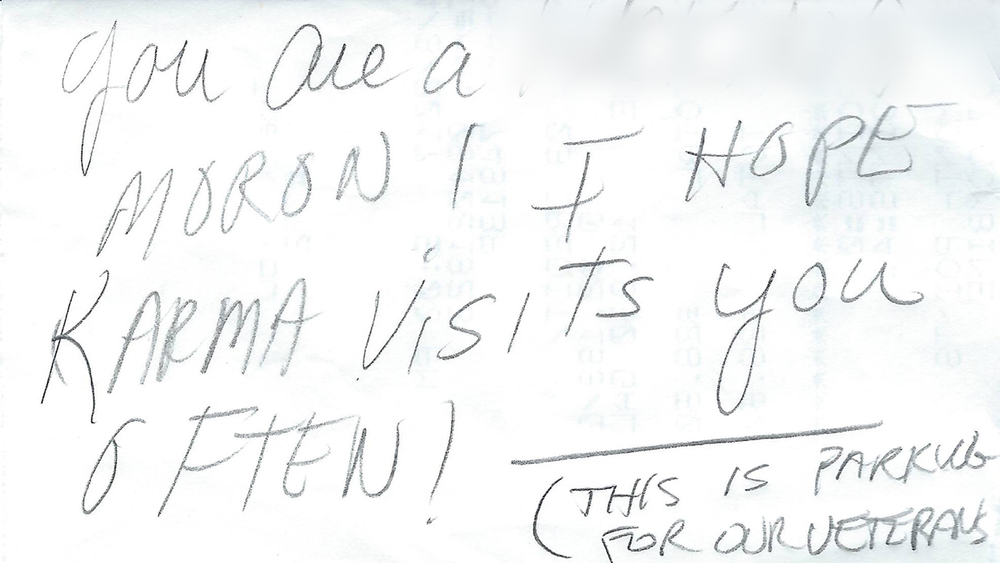 you are a
MORON! I HOPE
KARMA visits you
OFTEN!
(THIS IS PARKING
FOR OUR VETERANS